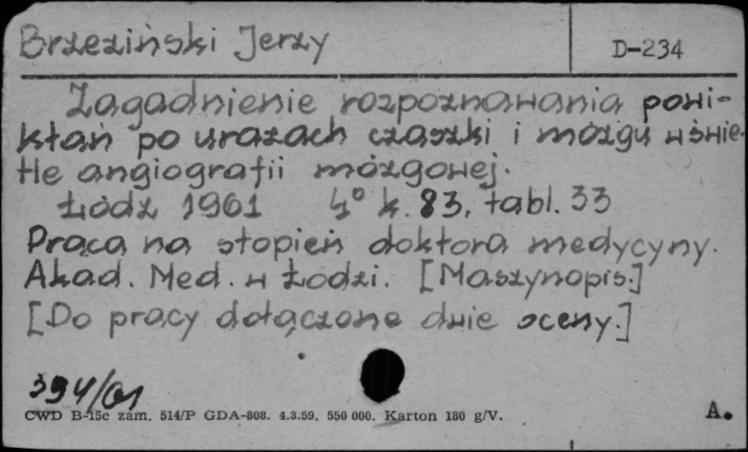 Brzeziński Jerzy
D-234
Zagadnienie rozpoznawania powi-
kłań po urazach czaszki i mózgu w świe-
tle angiografii mózgowej.
Łódź 1961 4° k. 83, tabl. 33
Praca na stopień doktora medycyny.
Akad. Med. w Łodzi. [Maszynopis.]
[Do pracy dołączono dwie oceny.]
394/61
CWD B-15c zam. 514/P GDA-808. 4.3.59. 550 000. Karton 180 g/V.
A.